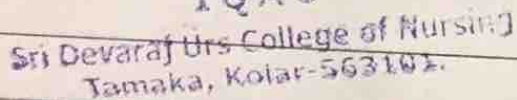 Sri Devaraj Urs College of Nursing
Tamaka, Kolar-563101.